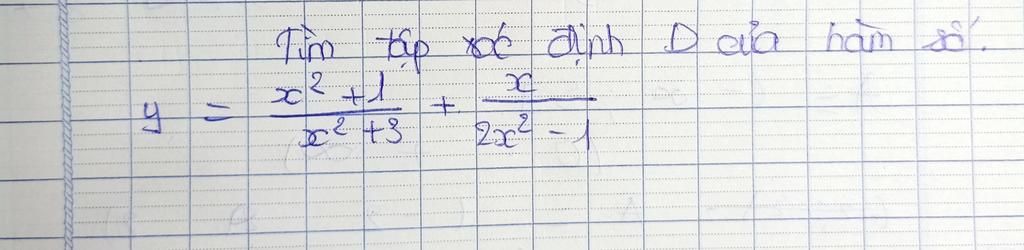 Tìm tập xác định D của hàm số.
y = \frac{x^2 + 1}{x^2 + 3} + \frac{x}{2x^2 - 1}